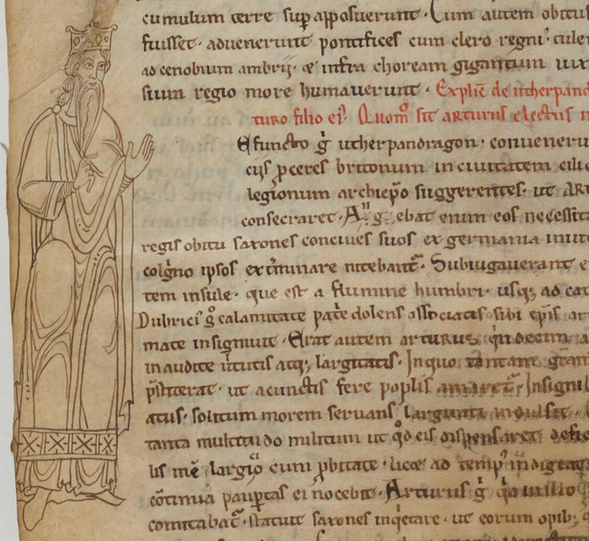 cumulum terre sup apposuerunt. Cum autem obitus
fuisset. advenerunt pontifices cum clero regni. tuler
ad cenobium ambrij. & infra choream gigantum iux
suum regio more humaverunt. Explic̄ de utherpend
turo filio ei᷒. Quom̊ sit arturus electus i
Efuncto g̊ utherpandragon. convener
cijs p̱ceres britonum in civitatem cilc
legionum archiep̄o suggerentes. ut AR
consecraret. A g ebat enim eos necessita
regis obitu saxones concives suos ex germania invit
colgno ipsos exterminare nitebant᷑. Subiugaverant e
tem insule. que est a flumine humbri. usq; ad cat
Dubrici᷒ g̊ calamitate pat̄e dolens associatis sibi ep̄is ar
mate insignivit. Erat autem arturus. a
inaudite v̄tutis atq; largitatis. In quo tantam gr̄am
p̄stiterat. ut a cunctis fere pop̄lis amaret᷑. Insigni
atus. solitum morem servans
tanta multitudo militum ut q̊d eis dispensaret defic
lis largi̊o cum p̱bitate. licet ad temp᷒ indigeat
cōtinua paup̱tas ei nocebit. Arturus g̊ q̇a in illo
comitabat᷑. statuit saxones inq̇etare. ut eorum opib;